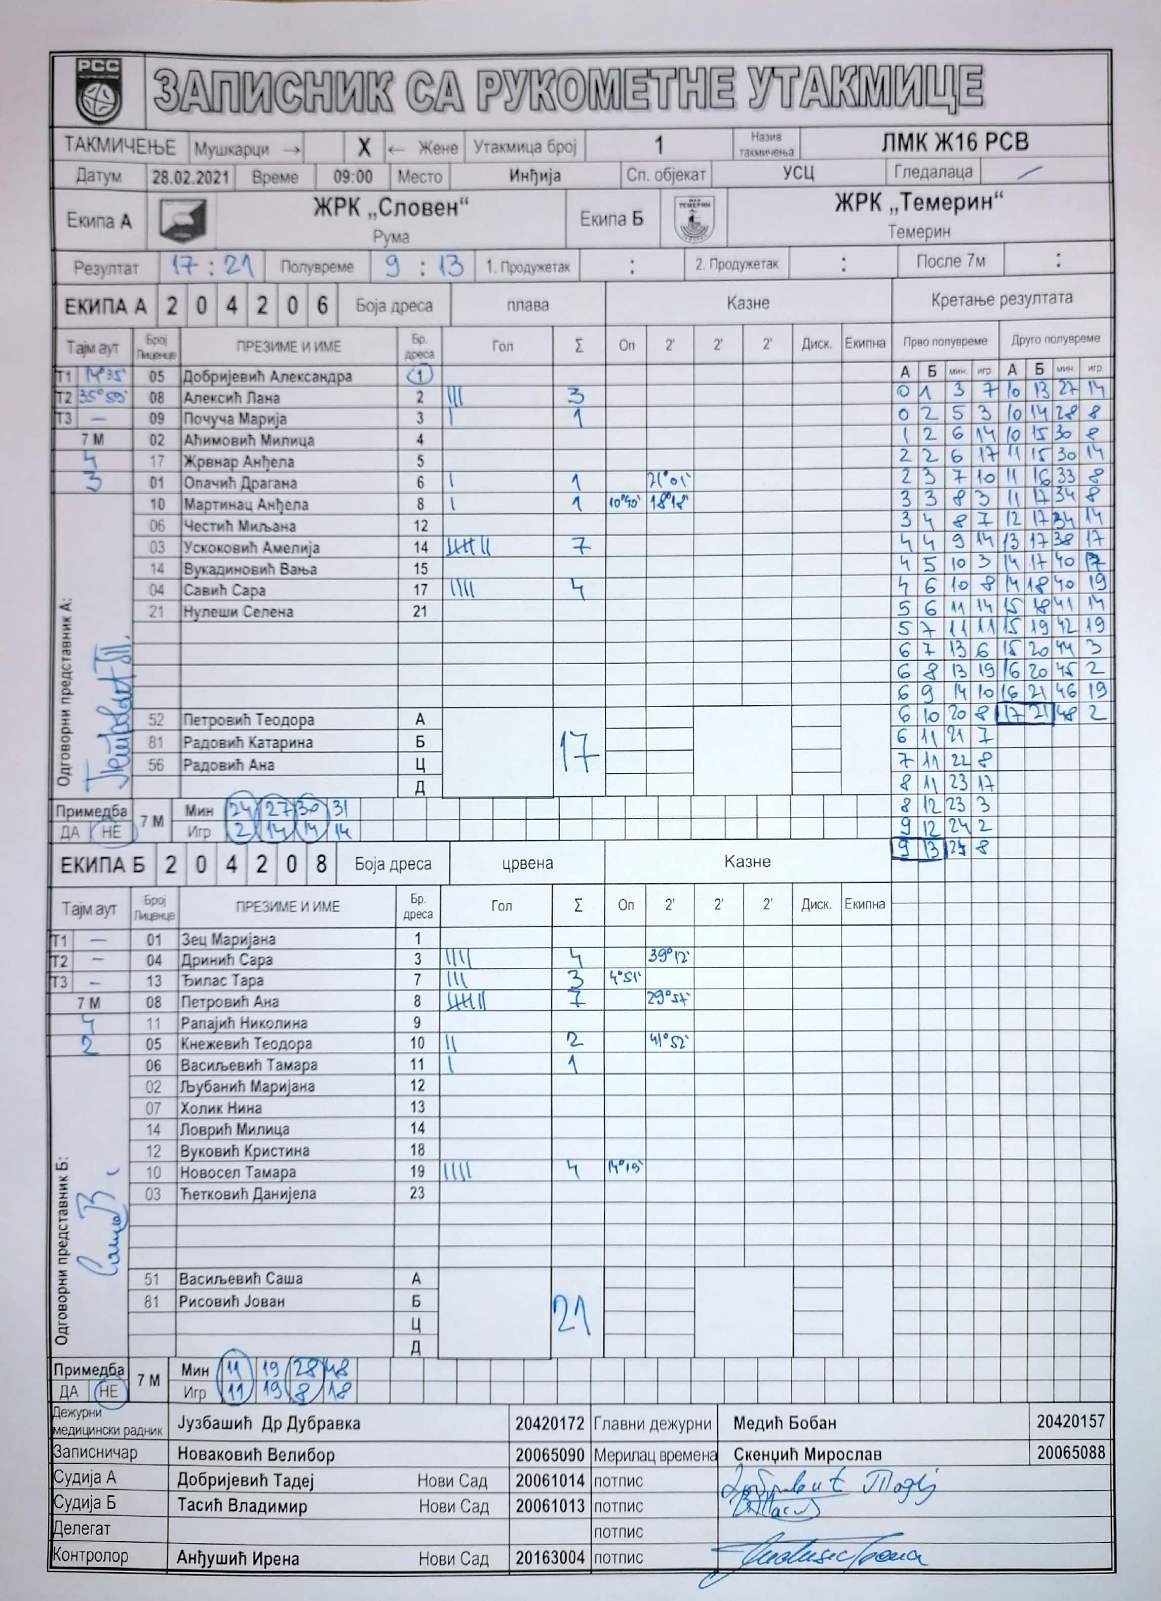 РСС
ЗАПИСНИК СА РУКОМЕТНЕ УТАКМИЦЕ
ТАКМИЧЕЊЕ Мушкарци → X ← Жене Утакмица број 1 Назив такмичења ЛМК Ж16 РСВ
Датум 28.02.2021 Време 09:00 Место Инђија Сп. објекат УСЦ Гледалаца /
Екипа А ЖРК „Словен“ Екипа Б ТЕМЕРИН ЖРК „Темерин“
Рума Темерин
Резултат 17 : 21 Полувреме 9 : 13 1. Продужетак : 2. Продужетак : После 7м :
ЕКИПА А 2 0 4 2 0 6 Боја дреса плава Казне Кретање резултата
Тајм аут Број Лиценце ПРЕЗИМЕ И ИМЕ Бр. дреса Гол Σ Оп 2' 2' 2' Диск. Екипна Прво полувреме Друго полувреме
А Б мин. игр А Б мин. игр
Т1 14°35' 05 Добријевић Александра 1
Т2 35°55' 08 Алексић Лана 2 III 3 0 1 3 7 10 13 27 14
Т3 — 09 Почуча Марија 3 I 1 0 2 5 3 10 14 28 8
7 М 02 Аћимовић Милица 4 1 2 6 14 10 15 30 8
4 17 Жрвнар Анђела 5 2 2 6 17 11 15 30 14
3 01 Опачић Драгана 6 I 1 21°01' 2 3 7 10 11 16 33 8
10 Мартинац Анђела 8 I 1 10°40' 18°18' 3 3 8 3 11 17 34 8
06 Честић Миљана 12 3 4 8 7 12 17 34 14
03 Ускоковић Амелија 14 IIIII II 7 4 4 9 14 13 17 38 17
14 Вукадиновић Вања 15 4 5 10 3 14 17 40 17
04 Савић Сара 17 IIII 4 4 6 10 8 14 18 40 19
21 Нулеши Селена 21 5 6 11 14 15 18 41 14
5 7 11 11 15 19 42 19
6 7 13 6 15 20 44 3
6 8 13 19 16 20 45 2
6 9 14 10 16 21 46 19
52 Петровић Теодора А 6 10 20 8 17 21 48 2
81 Радовић Катарина Б 17 6 11 21 7
56 Радовић Ана Ц 7 11 22 8
Д 8 11 23 17
Одговорни представник А:
Примедба 7 М Мин 24 27 30 31 8 12 23 3
ДА НЕ Игр 2 14 14 14 9 12 24 2
ЕКИПА Б 2 0 4 2 0 8 Боја дреса црвена Казне 9 13 25 8
Тајм аут Број Лиценце ПРЕЗИМЕ И ИМЕ Бр. дреса Гол Σ Оп 2' 2' 2' Диск. Екипна
Т1 — 01 Зец Маријана 1
Т2 — 04 Дринић Сара 3 IIII 4 39°12'
Т3 — 13 Ђилас Тара 7 III 3 4°51'
7 М 08 Петровић Ана 8 IIIII II 7 29°57'
4 11 Рапајић Николина 9
2 05 Кнежевић Теодора 10 II 2 41°52'
06 Васиљевић Тамара 11 I 1
02 Љубанић Маријана 12
07 Холик Нина 13
14 Ловрић Милица 14
12 Вуковић Кристина 18
10 Новосел Тамара 19 IIII 4 14°19'
03 Ћетковић Данијела 23
51 Васиљевић Саша А
81 Рисовић Јован Б 21
Ц
Д
Одговорни представник Б:
Примедба 7 М Мин 11 19 28 48
ДА НЕ Игр 11 19 8 18
Дежурни медицински радник Јузбашић Др Дубравка 20420172 Главни дежурни Медић Бобан 20420157
Записничар Новаковић Велибор 20065090 Мерилац времена Скенџић Мирослав 20065088
Судија А Добријевић Тадеј Нови Сад 20061014 потпис
Судија Б Тасић Владимир Нови Сад 20061013 потпис
Делегат потпис
Контролор Анђушић Ирена Нови Сад 20163004 потпис